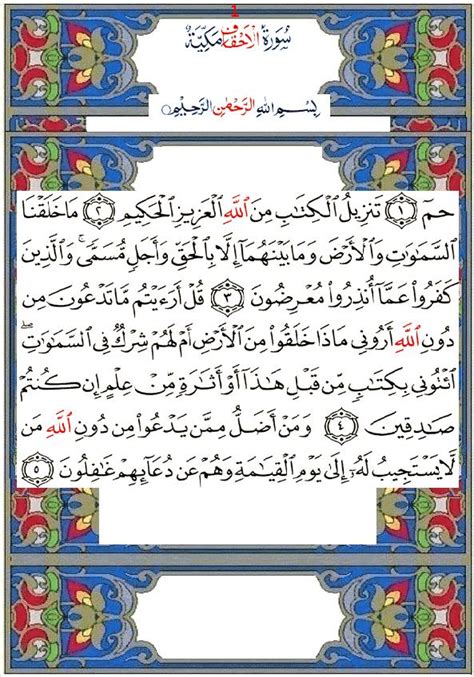 1
سُورَةُ الْأَحْقَافِ مَكِّيَّةٌ
بِسْمِ اللَّهِ الرَّحْمَٰنِ الرَّحِيمِ
حمٓ ١ تَنزِيلُ الْكِتَابِ مِنَ اللَّهِ الْعَزِيزِ الْحَكِيمِ ٢ مَا خَلَقْنَا
السَّمَاوَاتِ وَالْأَرْضَ وَمَا بَيْنَهُمَا إِلَّا بِالْحَقِّ وَأَجَلٍ مُّسَمًّى ۚ وَالَّذِينَ
كَفَرُوا عَمَّا أُنذِرُوا مُعْرِضُونَ ٣ قُلْ أَرَءَيْتُم مَّا تَدْعُونَ مِن
دُونِ اللَّهِ أَرُونِي مَاذَا خَلَقُوا مِنَ الْأَرْضِ أَمْ لَهُمْ شِرْكٌ فِي السَّمَاوَاتِ ۖ
ائْتُونِي بِكِتَابٍ مِّن قَبْلِ هَٰذَا أَوْ أَثَارَةٍ مِّنْ عِلْمٍ إِن كُنتُمْ
صَادِقِينَ ٤ وَمَنْ أَضَلُّ مِمَّن يَدْعُوا مِن دُونِ اللَّهِ مَن
لَّا يَسْتَجِيبُ لَهُ إِلَىٰ يَوْمِ الْقِيَامَةِ وَهُمْ عَن دُعَائِهِمْ غَافِلُونَ ٥